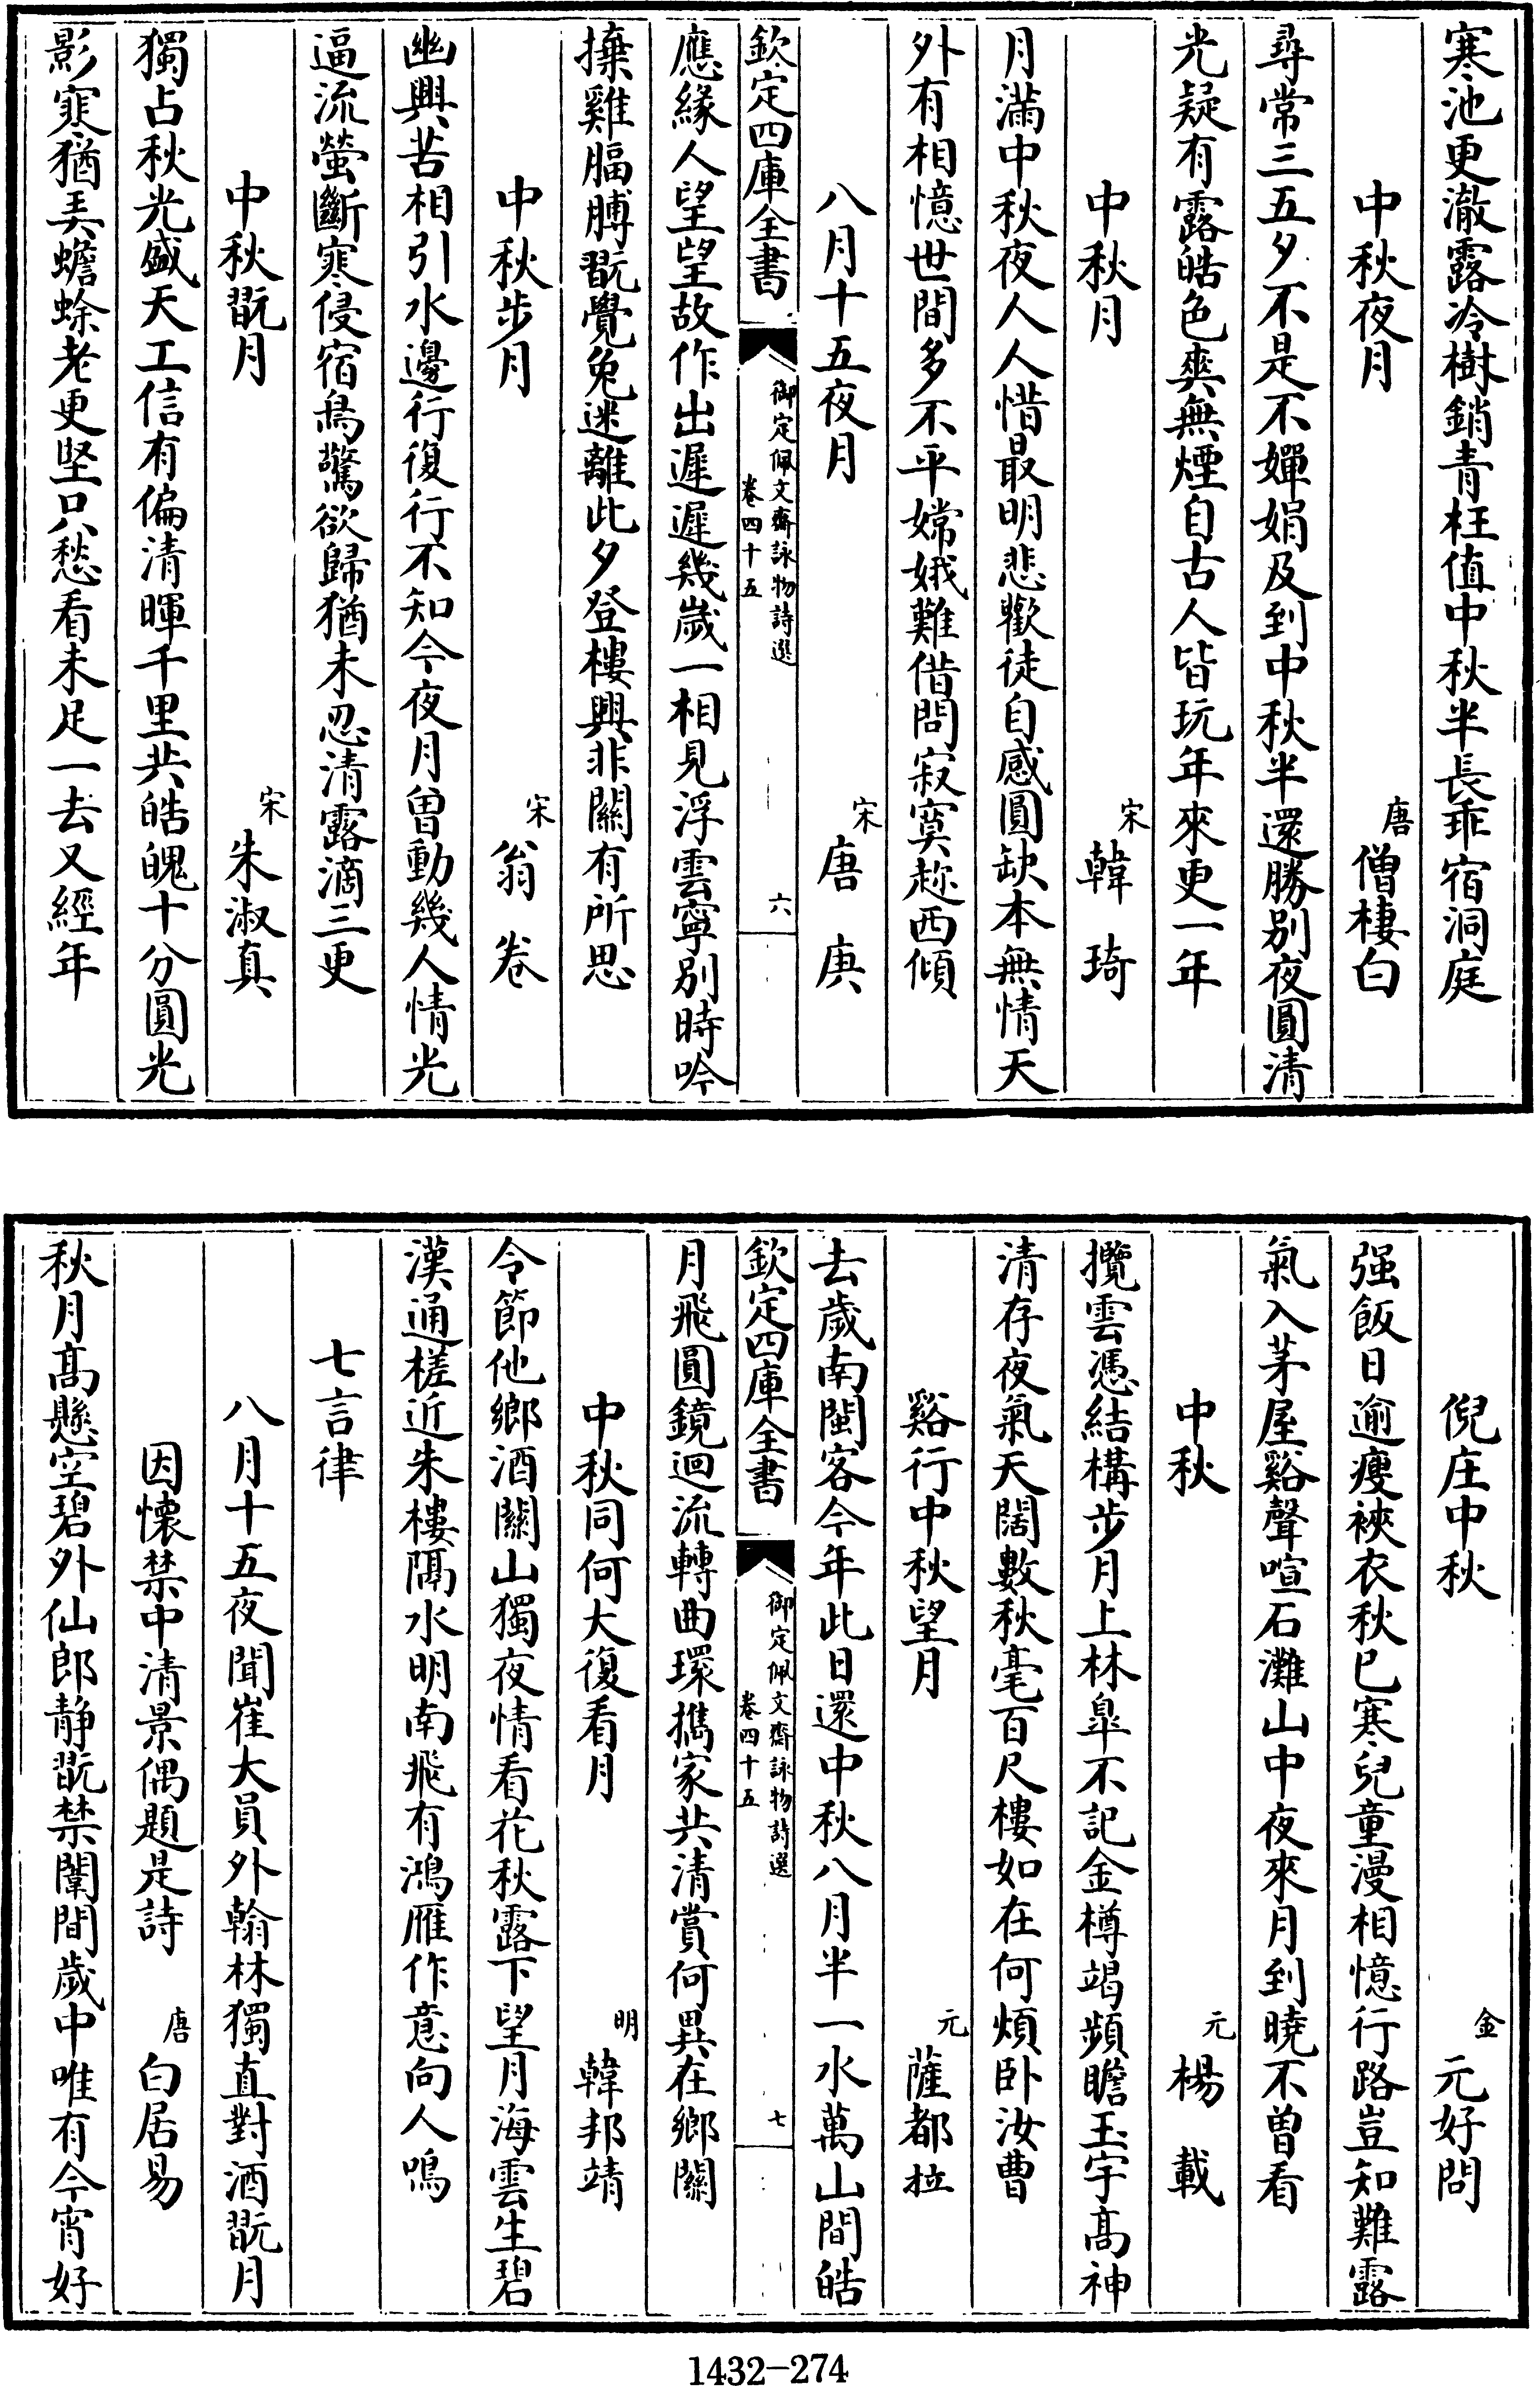 寒池更澈露冷樹銷青枉值中秋半長乖宿洞庭
中秋夜月　唐僧棲白
尋常三五夕不是不嬋娟及到中秋半還勝别夜圓清
光疑有露皓色爽無煙自古人皆玩年來更一年
中秋月　宋韓琦
月滿中秋夜人人惜最明悲歡徒自感圓缺本無情天
外有相憶世間多不平嫦娥難借問寂寞趂西傾
八月十五夜月　宋唐庚
欽定四庫全書　御定佩文齋詠物詩選卷四十五　六
應緣人望望故作出遲遲幾歲一相見浮雲寧别時吟
㨿雞腷膊翫覺兔迷離此夕登樓興非關有所思
中秋步月　宋翁卷
幽興苦相引水邊行復行不知今夜月曾動幾人情光
逼流螢斷寒侵宿鳥驚欲歸猶未忍清露滴三更
中秋翫月　宋朱淑真
獨占秋光盛天工信有偏清暉千里共皓魄十分圓光
影寒猶弄蟾蜍老更堅只愁看未足一去又經年
倪庄中秋　金元好問
强飯日逾瘦裌衣秋巳寒兒童漫相憶行路豈知難露
氣入茅屋谿聲喧石灘山中夜來月到曉不曾看
中秋　元楊載
攬雲憑結構步月上林臯不記金樽竭頻瞻玉宇高神
清存夜氣天闊數秋毫百尺樓如在何煩卧汝曹
谿行中秋望月　元薩都拉
去歲南閩客今年此日還中秋八月半一水萬山間皓
欽定四庫全書　御定佩文齋詠物詩選卷四十五　七
月飛圓鏡迴流轉曲環攜家共清賞何異在鄉關
中秋同何大復看月　明韓邦靖
令節他鄉酒關山獨夜情看花秋露下望月海雲生碧
漢通槎近朱樓隔水明南飛有鴻雁作意向人鳴
七言律
八月十五夜聞崔大員外翰林獨直對酒翫月
因懐禁中清景偶題是詩　唐白居易
秋月高懸空碧外仙郎静翫禁闈間歲中唯有今宵好
1432-274